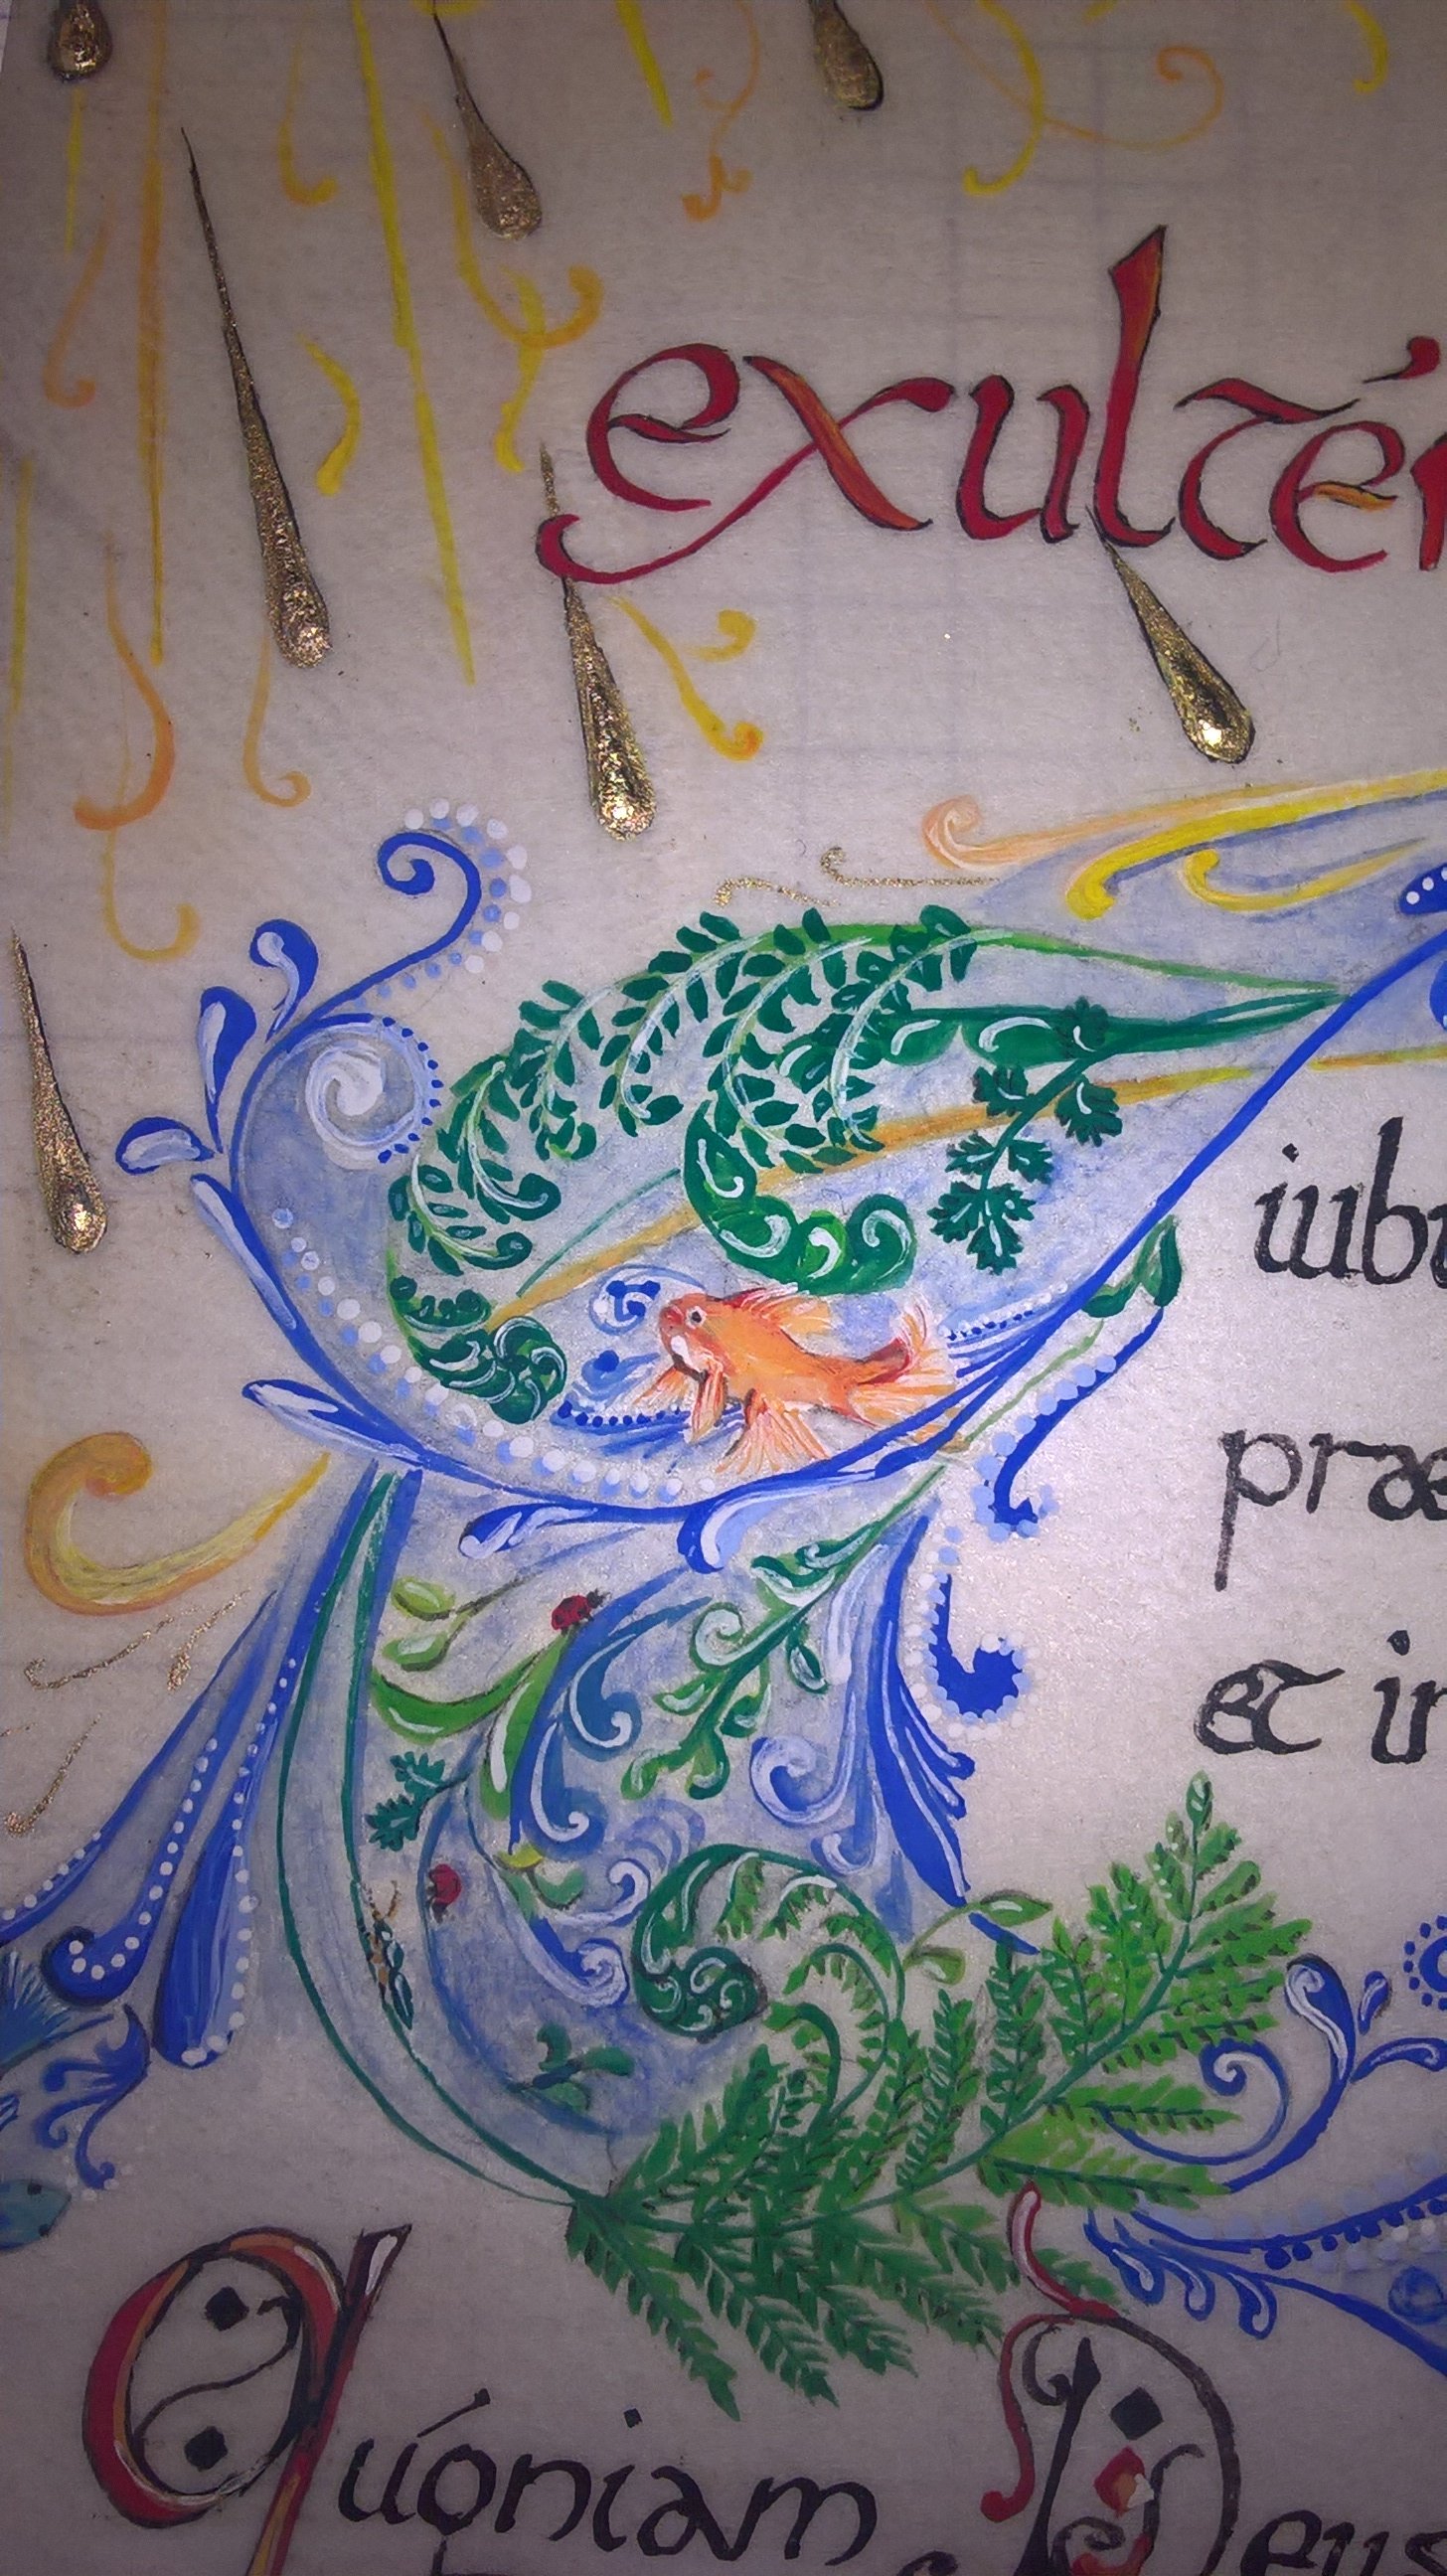 exulté
iubi
præ
et in
Quóniam Deus